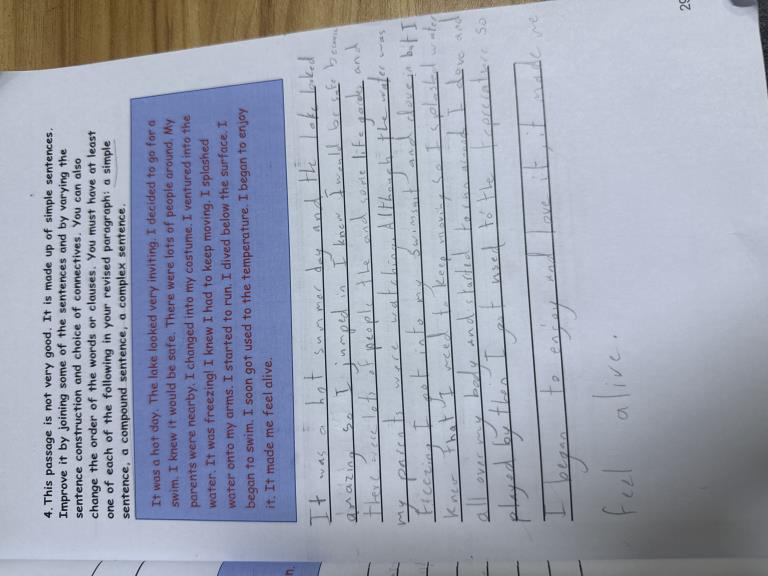 4. This passage is not very good. It is made up of simple sentences.
Improve it by joining some of the sentences and by varying the
sentence construction and choice of connectives. You can also
change the order of the words or clauses. You must have at least
one of each of the following in your revised paragraph: a simple
sentence, a compound sentence, a complex sentence.
It was a hot day. The lake looked very inviting. I decided to go for a
swim. I knew it would be safe. There were lots of people around. My
parents were nearby. I changed into my costume. I ventured into the
water. It was freezing! I knew I had to keep moving. I splashed
water onto my arms. I started to run. I dived below the surface. I
began to swim. I soon got used to the temperature. I began to enjoy
it. It made me feel alive.
It was a hot summer day and the lake looked
amazing so I jumped in I knew I would be safe
there were lots of people the and some life gards and
my parents were watching. Although the water was
freezing I got into my swimsuit and dove in but I
knew that I need to keep moving so I splashed water
all over my body and started to run around I dove and
played by then I got used to the temperature so
I began to enjoy and love it, it made me
feel alive.
29
n.